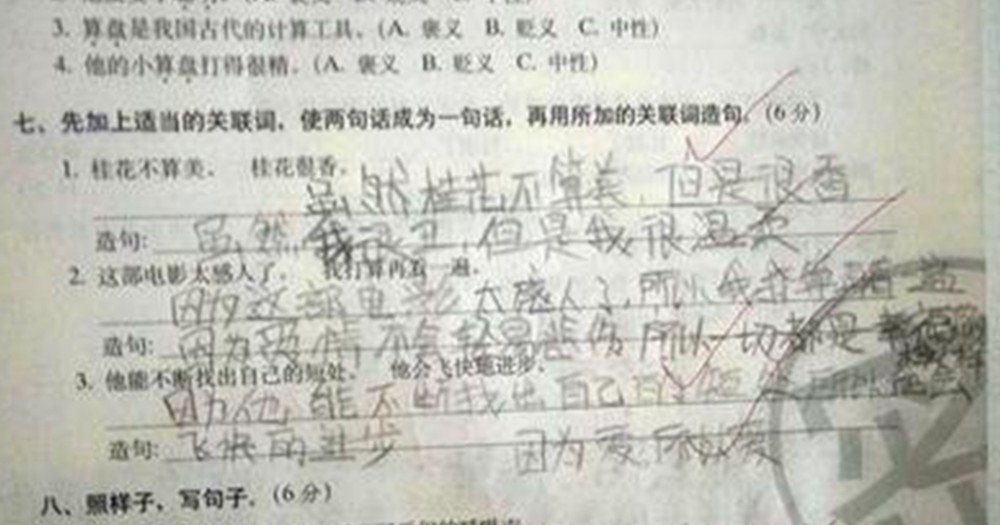 3. 算盘是我国古代的计算工具。(A. 褒义 B. 贬义 C. 中性)
4. 他的小算盘打得很精。(A. 褒义 B. 贬义 C. 中性)
七、先加上适当的关联词,使两句话成为一句话,再用所加的关联词造句。(6分)
1. 桂花不算美。 桂花很香。
虽然桂花不算美,但是很香
造句: 虽然我很丑,但是我很温柔
2. 这部电影太感人了。 我打算再看一遍。
因为这部电影太感人了,所以我打算再看
造句: 因为爱情不会轻易悲伤 所以一切都是
3. 他能不断找出自己的短处。 他会飞快地进步。
因为他能不断找出自己的短 所以他会
造句: 飞快的进步 因为爱所以爱
八、照样子,写句子。(6分)